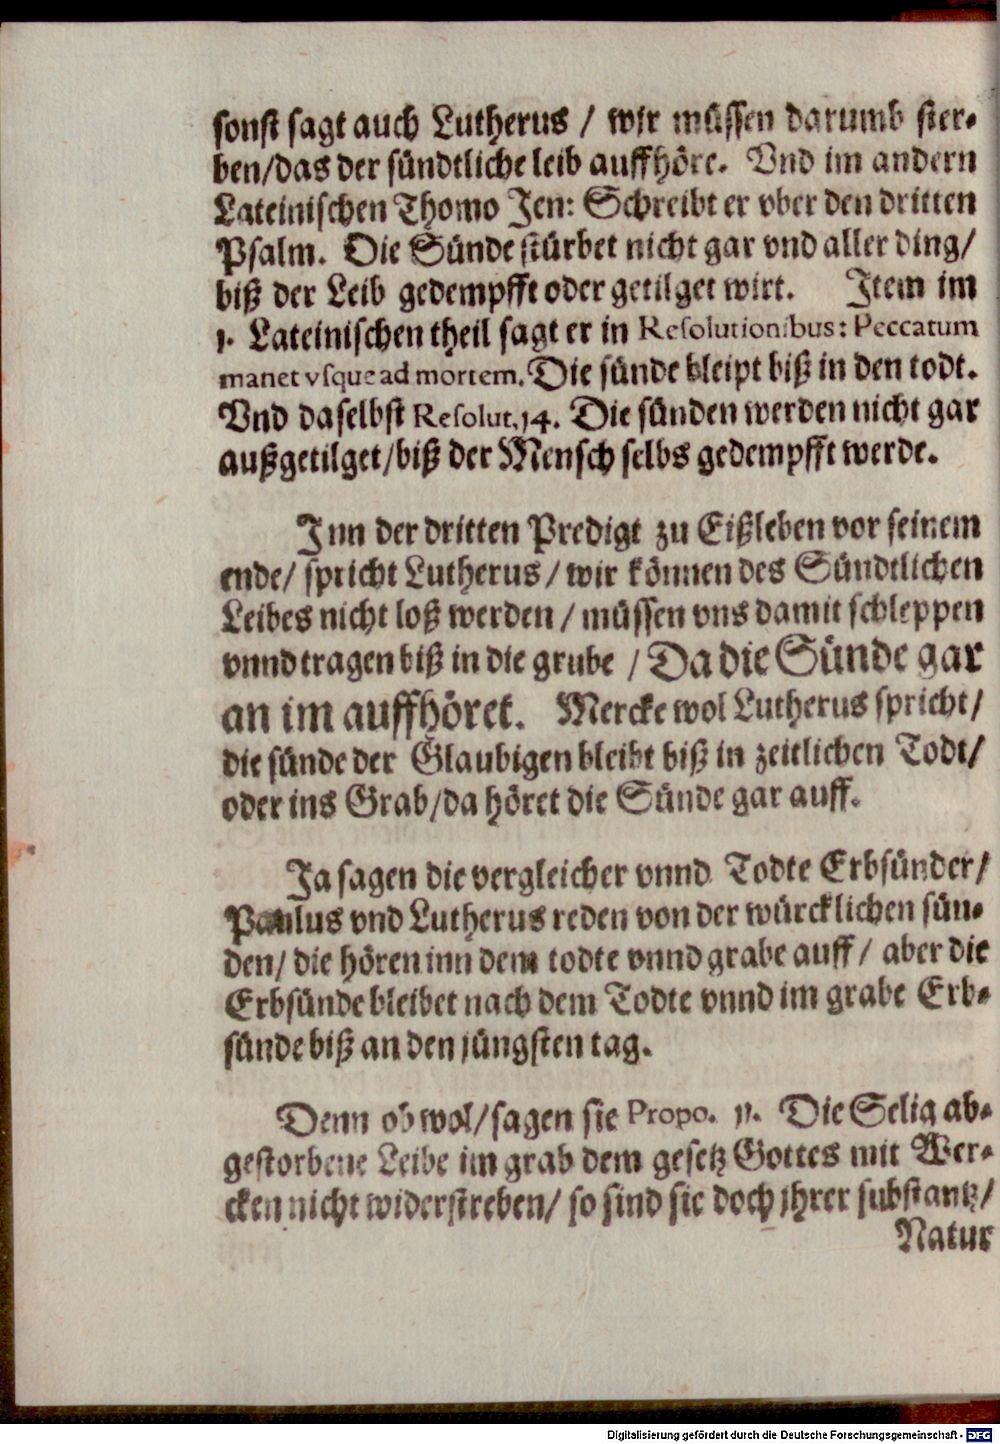 sonst sagt auch Lutherus / wir müssen darumb ster-
ben/das der sündtliche leib auffhöre. Vnd im andern
Lateinischen Thomo Jen: Schreibt er vber den dritten
Psalm. Die Sünde stürbet nicht gar vnd aller ding/
biß der Leib gedempfft oder getilget wirt. Item im
1. Lateinischen theil sagt er in Resolutionibus: Peccatum
manet vsque ad mortem. Die sünde bleipt biß in den todt.
Vnd daselbst Resolut. 14. Die sünden werden nicht gar
außgetilget/biß der Mensch selbs gedempfft werde.
Inn der dritten Predigt zu Eißleben vor seinem
ende/ spricht Lutherus/ wir können des Sündtlichen
Leibes nicht loß werden / müssen vns damit schleppen
vnnd tragen biß in die grube / Da die Sünde gar
an im auffhöret. Mercke wol Lutherus spricht/
die sünde der Glaubigen bleibt biß in zeitlichen Todt/
oder ins Grab/da höret die Sünde gar auff.
Ja sagen die vergleicher vnnd Todte Erbsünder/
Paulus vnd Lutherus reden von der würcklichen sün-
den/ die hören inn dem todte vnnd grabe auff/ aber die
Erbsünde bleibet nach dem Todte vnnd im grabe Erb-
sünde biß an den jüngsten tag.
Denn ob wol/sagen sie Propo. 11. Die Selig ab-
gestorbene Leibe im grab dem gesetz Gottes mit Wer-
cken nicht widerstreben/ so sind sie doch jhrer substantz/
Natur
Digitalisierung gefördert durch die Deutsche Forschungsgemeinschaft - DFG